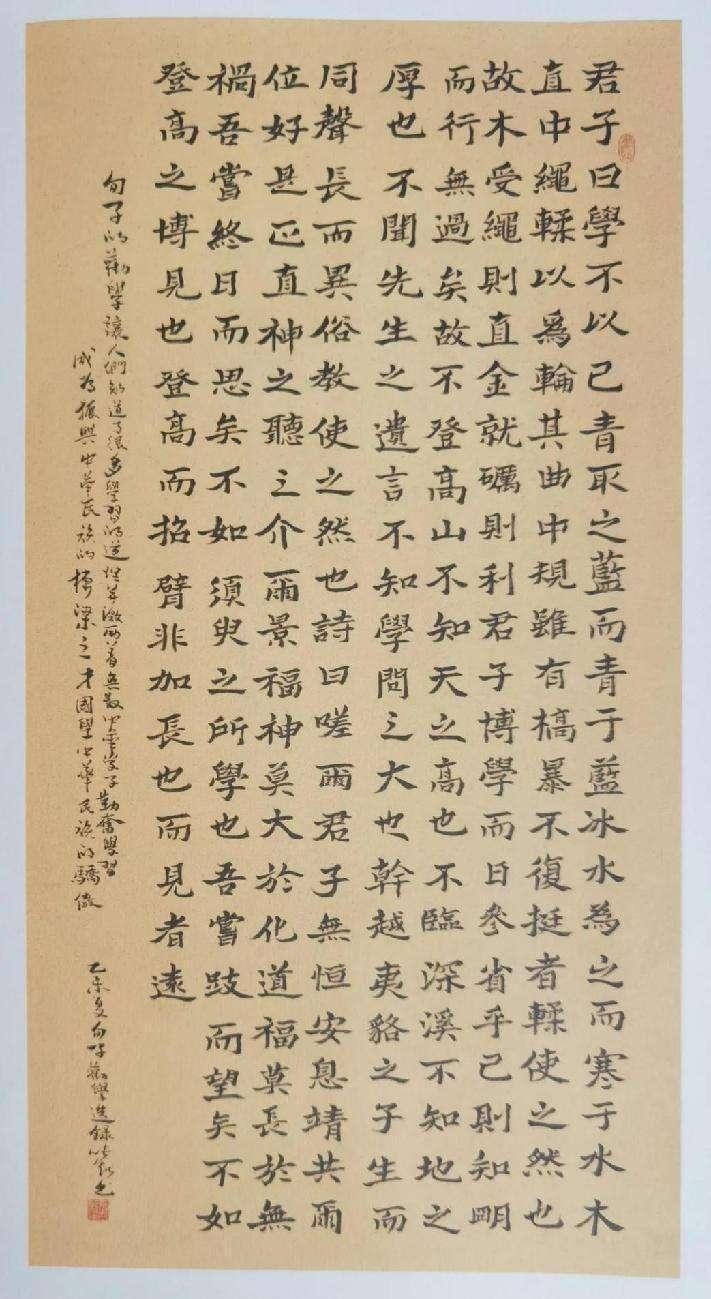 君子曰學不以已青取之藍而青于藍冰水為之而寒于水木
直中繩輮以爲輪其曲中規雖有槁暴不復挺者輮使之然也
故木受繩則直金就礪則利君子博學而日參省乎己則知明
而行無過矣故不登高山不知天之高也不臨深溪不知地之
厚也不聞先生之遺言不知學問之大也幹越夷貉之子生而
同聲長而異俗教使之然也詩曰嗟爾君子無恒安息靖共爾
位好是正直神之聽之介爾景福神莫大於化道福莫長於無
禍吾嘗終日而思矣不如須臾之所學也吾嘗跂而望矣不如
登高之博見也登高而招臂非加長也而見者遠
荀子的勸學讓人們知道了很多學習的道理并激励着無数中華學子勤奮學習
成为振興中华民族的棟梁之才國學中華民族的驕傲
乙未夏荀子勸學選録